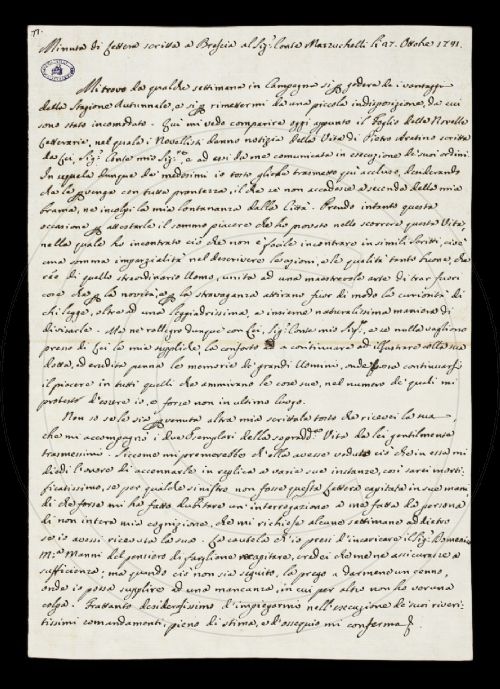 77.
Minuta di Lettera scritta a Brescia al Sig.r Conte Mazzuchelli li 27. Ottobre 1741.
Mi trovo da qualche settimana in Campagna sì per godere de i vantaggi
della Stagione Autunnale, e sì per rimettermi da una piccola indisposizione, da cui
sono stato incomodato. Qui mi vedo comparire oggi appunto il Foglio delle Novelle
Letterarie, nel quale i Novellisti danno notizia della Vita di Pietro Aretino scritta
da Lei, Sig.r Conte mio Sig.re e ad essi da me comunicata in esecuzione de' suoi ordini.
In sequela dunque de' medesimi io tosto gliela trasmetto qui accluso, desiderando
che le pervenga con tutta prontezza, il che se non accadesse a seconda della mia
brama, ne incolpi la mia lontananza dalla Città. Prendo intanto questa
occasione per attestarle il sommo piacere che ho provato nello scorrere questa Vita,
nella quale ho incontrato ciò che non è facile incontrare in simili Scritti, cioè
una somma imparzialità nel descrivere le azioni, e le qualità tanto buone, che
ree di quello straordinario Uomo, unita ad una maestrevole arte di trar fuori
cose che per la novità, e per la stravaganza attirano fuor di modo la curiosità di
chi legge, oltre ad una leggiadrissima, e insieme naturalissima maniera di
divisarle. Me ne rallegro dunque con Lei, Sig.r Conte mio Sig.re, e se nulla vagliono
presso di Lei le mie suppliche, la conforto a continuare ad illustrare colla sua
dotta, ed erudita penna le memorie de' grandi Uomini, onde possa continuarsi
il piacere in tutti quelli che ammirano le cose sue, nel numero de' quali mi
protesto d'essere io, e forse non in ultimo luogo.
Non so se le sia pervenuta altra mia scrittale tosto che ricevei la sua,
che mi accompagnò i due Esemplari della sopradd.a Vita da lei gentilmente
trasmessimi. Siccome mi premerebbe ch'ella avesse veduto ciò che in essa mi
diedi l'onore di accennarle in replica a varie sue instanze, così sarei morti-
ficatissimo, se per qualche sinistro non fosse questa Lettera capitata in sue mani,
di che forse mi ha fatto dubitare un'interrogazione a me fatta da persona
di non intera mia cognizione, che mi richiese alcune settimane addietro
se io avessi ricevuta la sua. La cautela ch'io presi d'incaricare il Sig.r Domenico
M.a Manni del pensiero di fargliene recapitare, credei che me ne assicurasse a
sufficienza; ma quando ciò non sia seguito, la prego a darmene un cenno,
onde io possa supplire ad una mancanza, in cui per altro non ho veruna
colpa. Frattanto desiderosissimo d'impiegarmi nell'esecuzione de' suoi riveri-
tissimi comandamenti, pieno di stima, e d'ossequio mi confermo